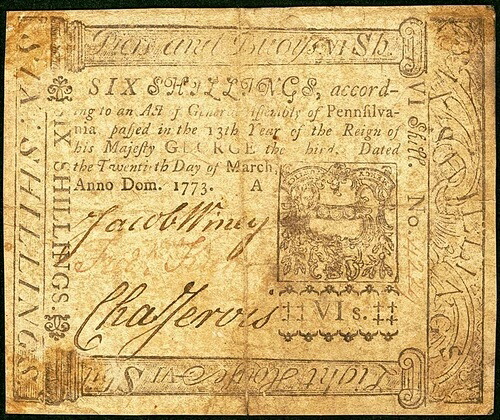 Piers and Buoys. VI Sh.
SIX SHILLINGS, accord-
ing to an Act of General Assembly of Pennsilva-
nia, passed in the 13th Year of the Reign of
his Majesty GEORGE the Third. Dated
the Twentieth Day of March,
Anno Dom. 1773. A
Jacob Winey
Cha Jervis
‡‡ VI s. ‡‡
SIX SHILLINGS
SIX SHILLINGS.
VI Shill. No.
Light House VI Sh